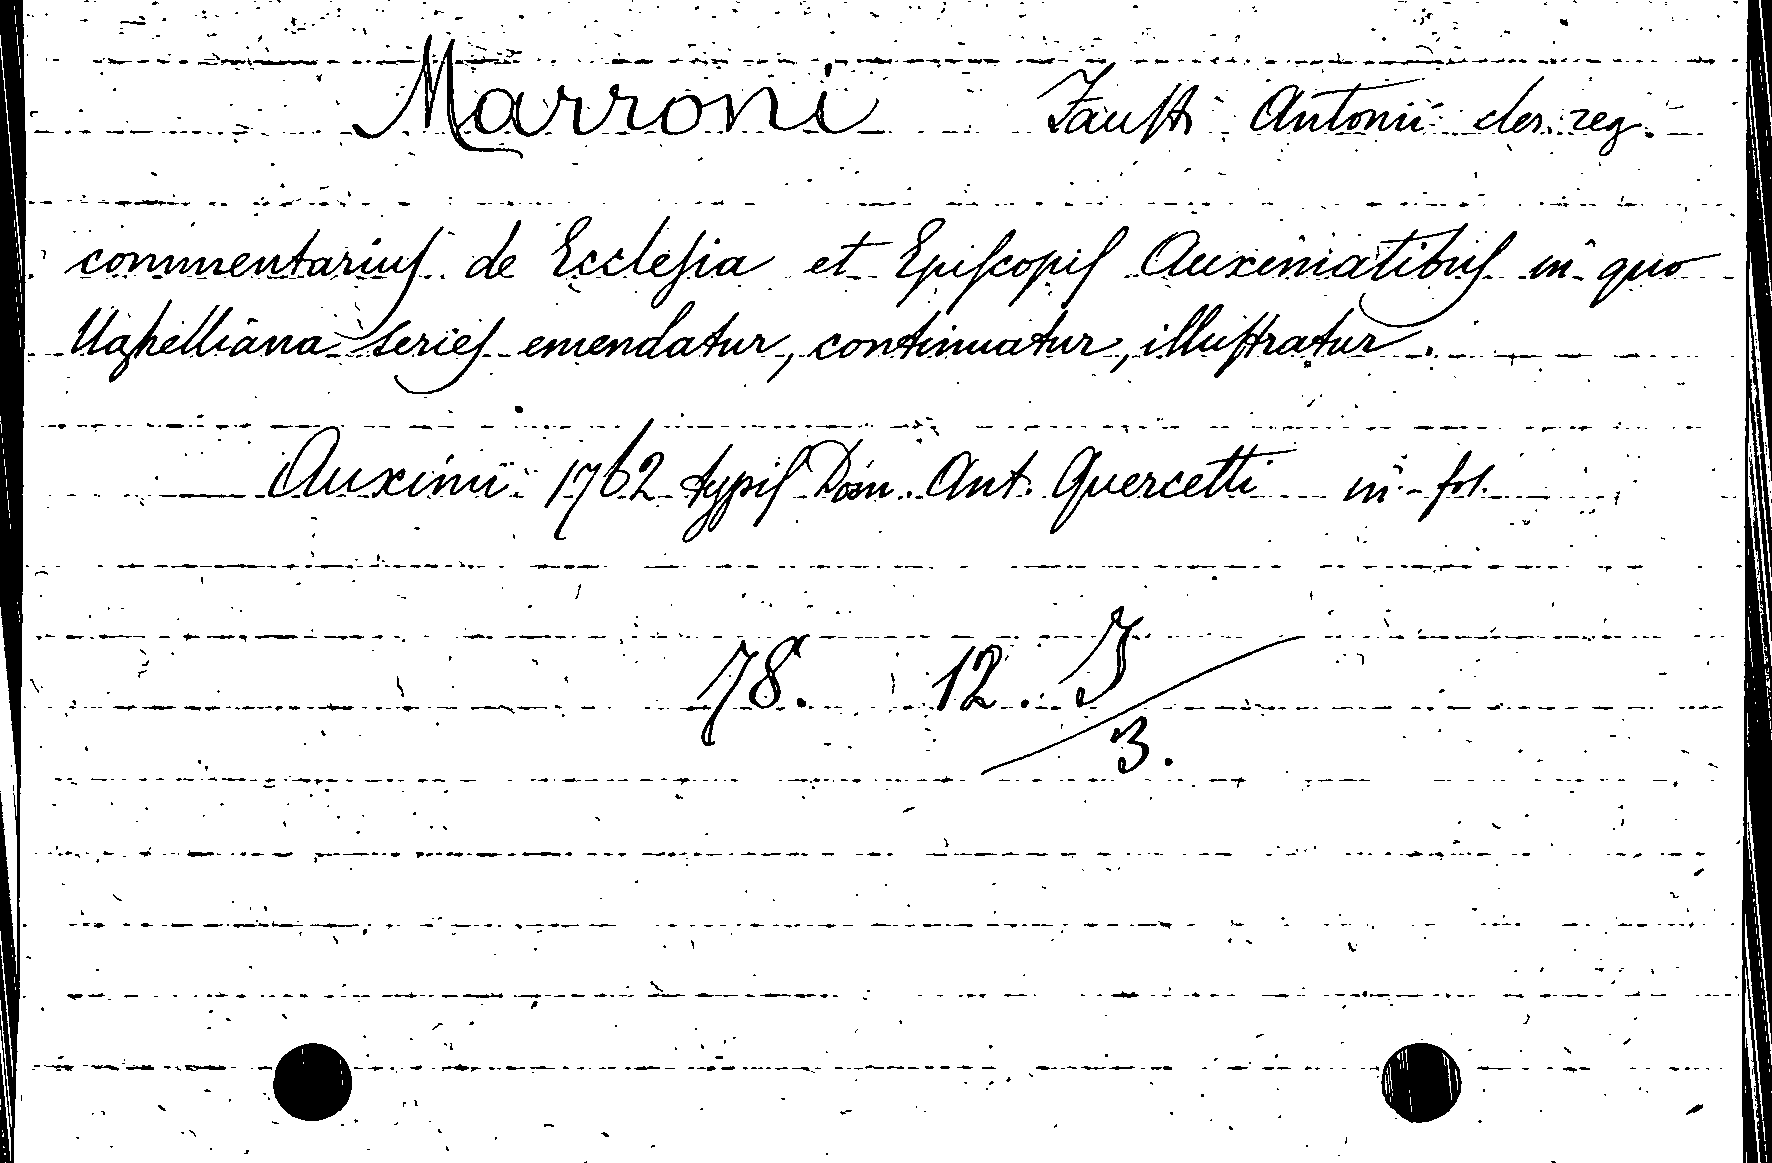 Marroni Fausti Antonii cler. reg.
commentariuſ de Eccleſia et Epiſcopiſ Auximatibuſ in quo
Ughelliana ſerieſ emendatur, continuatur, illuſtratur.
Auximi 1762 typiſ Dom. Ant. Quercetti in fol.
78. 12. J
3.